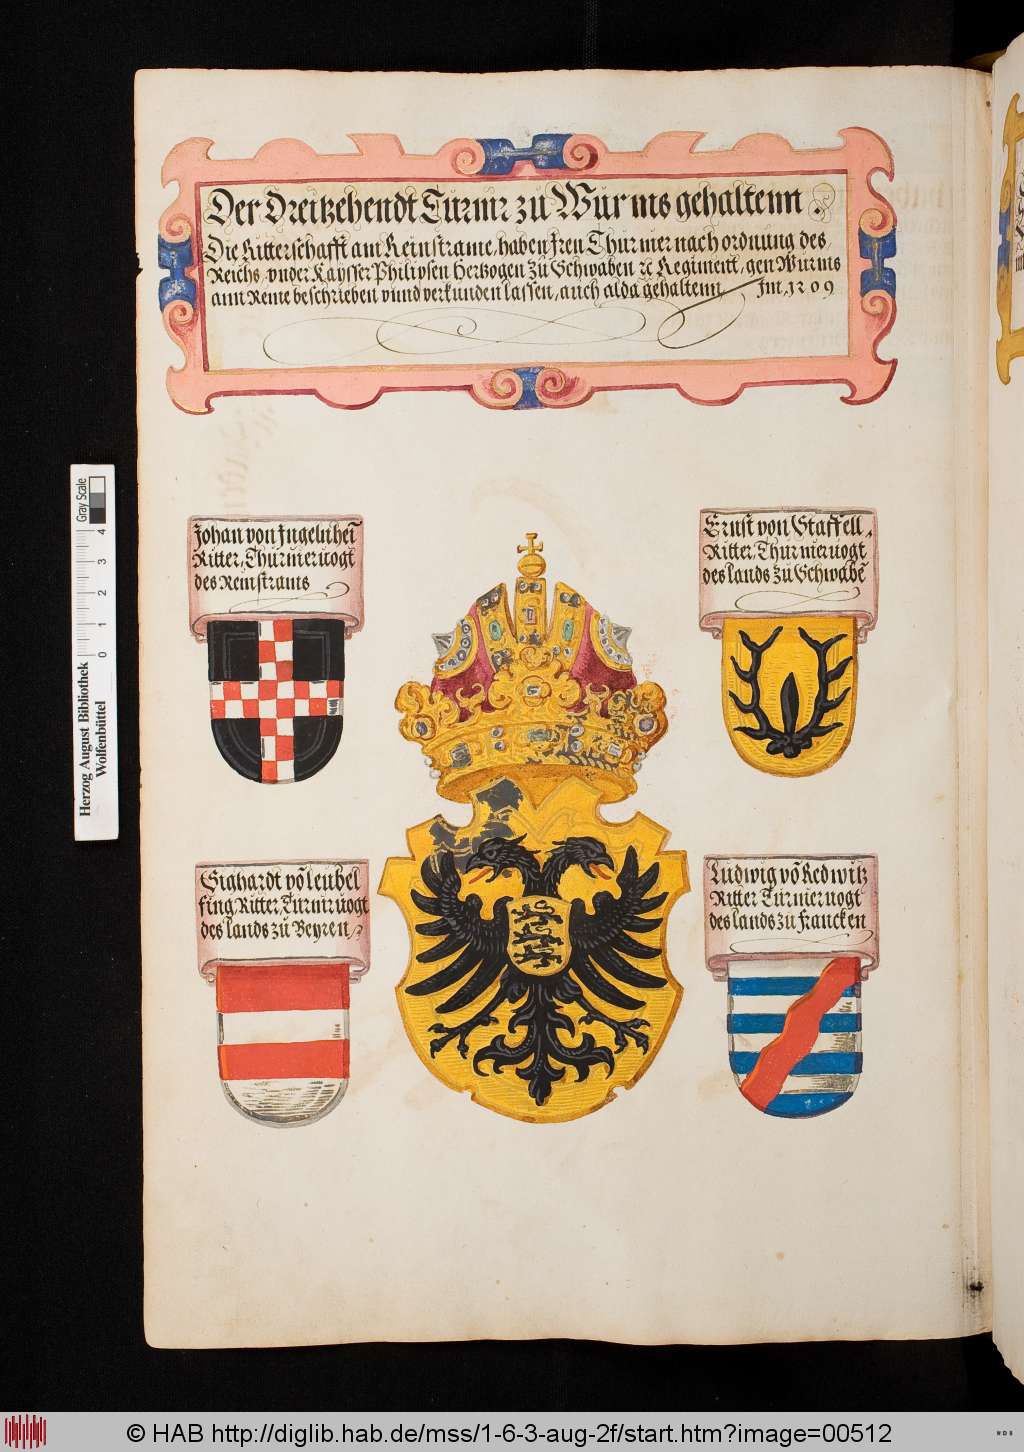 Der Dreitzehendt Turnir zu Wurms gehaltenn.
Die Ritterschafft am Reinstrame, haben jren Thurnier nach ordnung des
Reichs, vnder Kayser Philipsen Hertzogen zu Schwaben ꝛc Regiment, gen Wurms
am Reine beschrieben vnnd verkunden lassen, auch alda gehaltenn Im. 1209
Johan von Ingelnheī
Ritter, Thurnieruogt
des Reinstrams
Ernst von Staffell,
Ritter, Thurnieruogt
des lands zu Schwabē
Sighardt vō leubel
fing Ritter, Turniruogt
des lands zu Beyren
Ludwig vō Redwitz
Ritter Turnieruogt
des lands zu Francken
Herzog August Bibliothek
Wolfenbüttel
0 1 2 3 4
Gray Scale
© HAB http://diglib.hab.de/mss/1-6-3-aug-2f/start.htm?image=00512